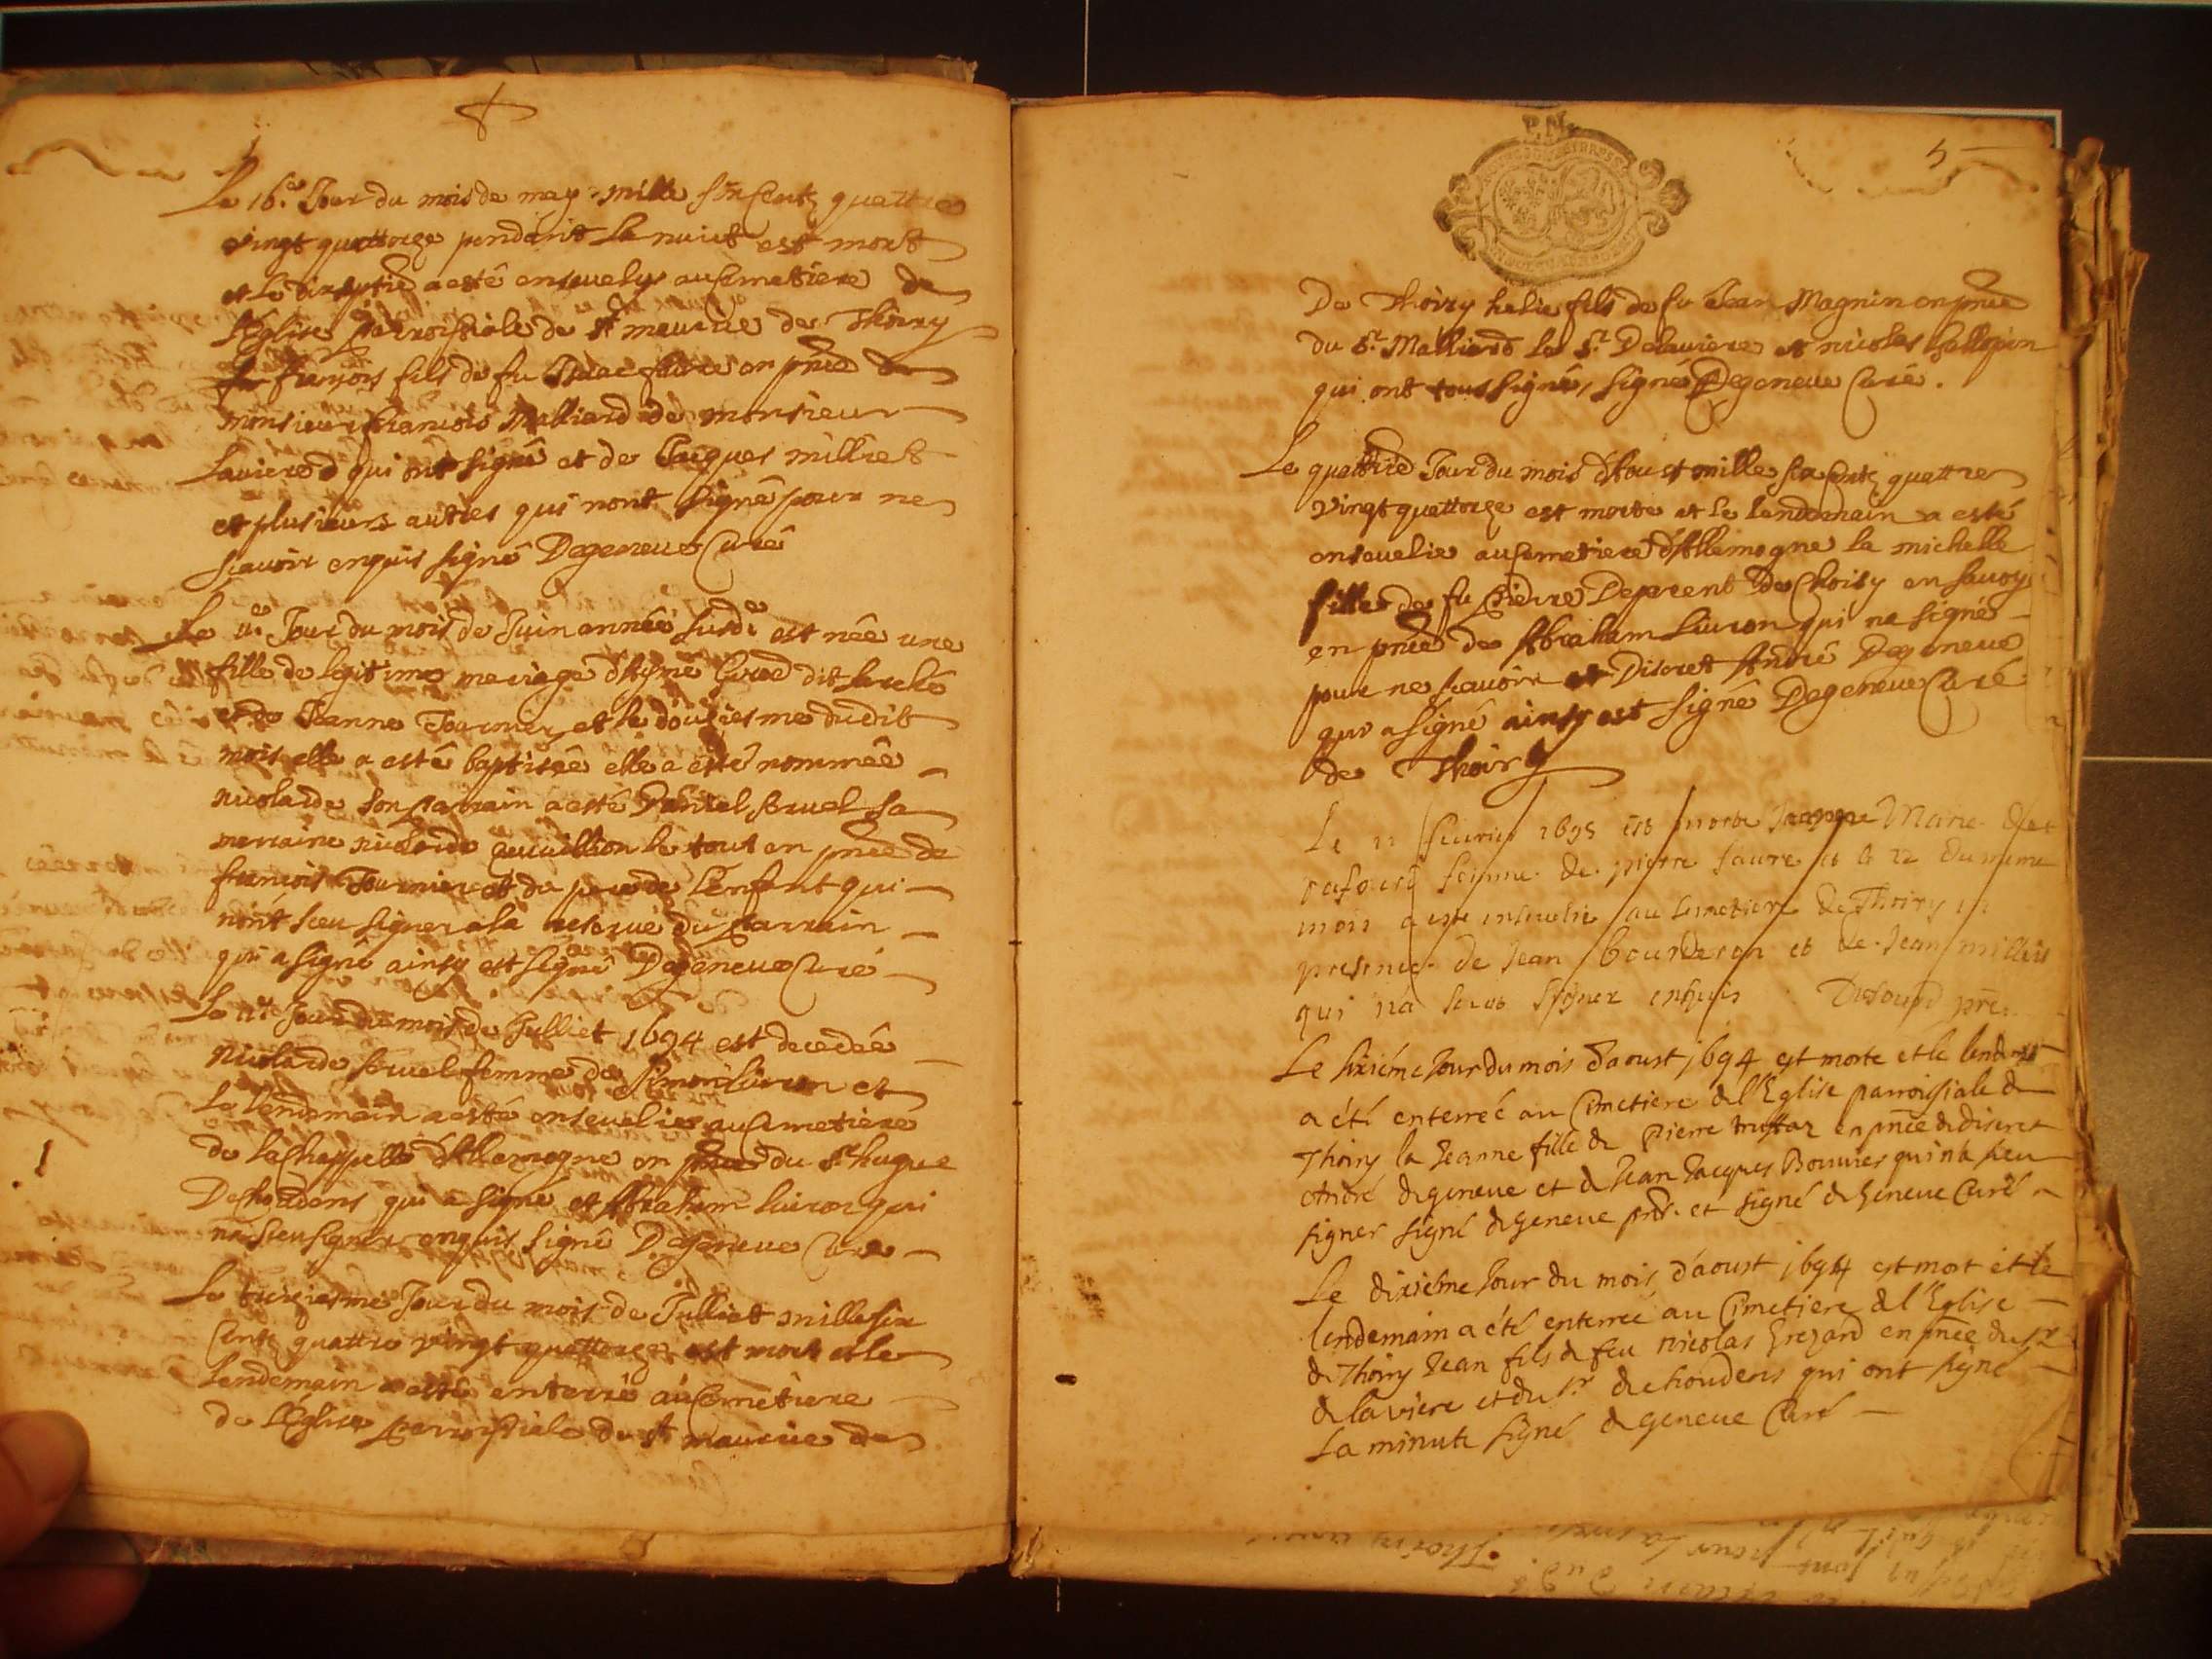 Le 16.e Jour du mois de may mille six Centz quattre
vingt quattorze pendant la nuict est mort
et le dixseptie a esté ensevelys au Cemettiere de
l'Eglise parroissiale de st maurice de Thoiry
françois fils de fu Isaac en pnce de
monsieur francois Malliard de monsieur
Laviere qui ont signé et de Jacques milliet
et plusieurs autres qui nont signé pour ne
scauoir enquis signé Degeneue Curé
Le 11.e Jour du mois de Juin année susde est née une
fille de legitime mariage d'Aymé Girod dit
et de Jeanne Fournier et le dousiesme dudit
mois elle a esté baptisée elle a esté nommée
nicolarde son parrain a esté Daniel sa
marraine nicolarde le tout en pnce de
francois Fournier et du pere de l'enfant qui
n'ont sceu signer a la reserue du parrain
qui a signé ainsy est signé Degeneue Curé
Le 11.e Jour du mois de Julliet 1694 est decedée
Nicolarde femme de Simon Liuron et
le lendemain a esté enseuelie au Cemetiere
de la Chappelle d'Allemogne en pnce du Sr hugue
Dechoudens qui a signé et Abraham Liuron qui
na sceu signer enquis signé Degeneue Curé
Le treiziesme Jour du mois de Julliet mille six
Centz quattre vingt quattorze est mort et le
Lendemain a esté enterré au Cemetiere
de l'Eglise parroissiale de st maurice de
5
P.N.
De Thoiry helie fils de fu Jean Magnin en pnce
du Sr. Malliard le Sr. Delauiere et nicolas Gallopin
qui ont tous signés, signé Degeneue Curé.
Le quattrie Jour du mois d'Aoust mille six Centz quattre
vingt quattorze est morte et le lendemain a esté
enseuelie au Cemetiere d'Allemogne la michelle
fille de fu Pierre Deparent de Choisy en Sauoy
en pnce de Abraham Liuron qui na signé
pour ne scauoir et Discret André Degeneue
qui a signé ainsy est signé Degeneue Curé
de Thoiry
Le 11 feurier 1695 est morte Marie
femme de pierre faure et le 12 du meme
mois a esté enseuelie au Cemetiere de Thoiry en
presence de Jean bourderon et de Jean milliet
qui na signer enquis
Le sixiéme Jour du mois d'aoust 1694 est morte et le lendemain
a été enterreé au Cimetiere de l'Eglise parroissiale de
Thoiry la Jeanne fille de Pierre en pnce de discret
André degeneue et de Jean Jacques Bouuier qui n'a sceu
signer signé degeneue et signé degeneue Curé
Le dixiéme Jour du mois d'aoust 1694 est mort et le
lendemain a été enterreé au Cimetiere de l'Eglise
de Thoiry Jean fils de feu Nicolas Grezard en pnce du Sr
de laviere et du Sr dechoudens qui ont signé
la minute signé degeneue Curé